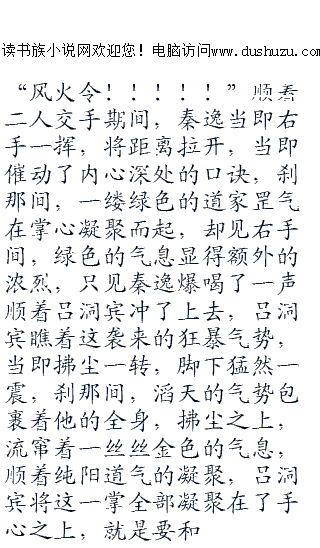 读书族小说网欢迎您！电脑访问www.dushuzu.com
“风火令！！！！！”顺着
二人交手期间，秦逸当即右
手一挥，将距离拉开，当即
催动了内心深处的口诀，刹
那间，一缕绿色的道家罡气
在掌心凝聚而起，却见右手
间，绿色的气息显得额外的
浓烈，只见秦逸爆喝了一声
顺着吕洞宾冲了上去，吕洞
宾瞧着这袭来的狂暴气势，
当即拂尘一转，脚下猛然一
震，刹那间，滔天的气势包
裹着他的全身，拂尘之上，
流窜着一丝丝金色的气息，
顺着纯阳道气的凝聚，吕洞
宾将这一掌全部凝聚在了手
心之上，就是要和